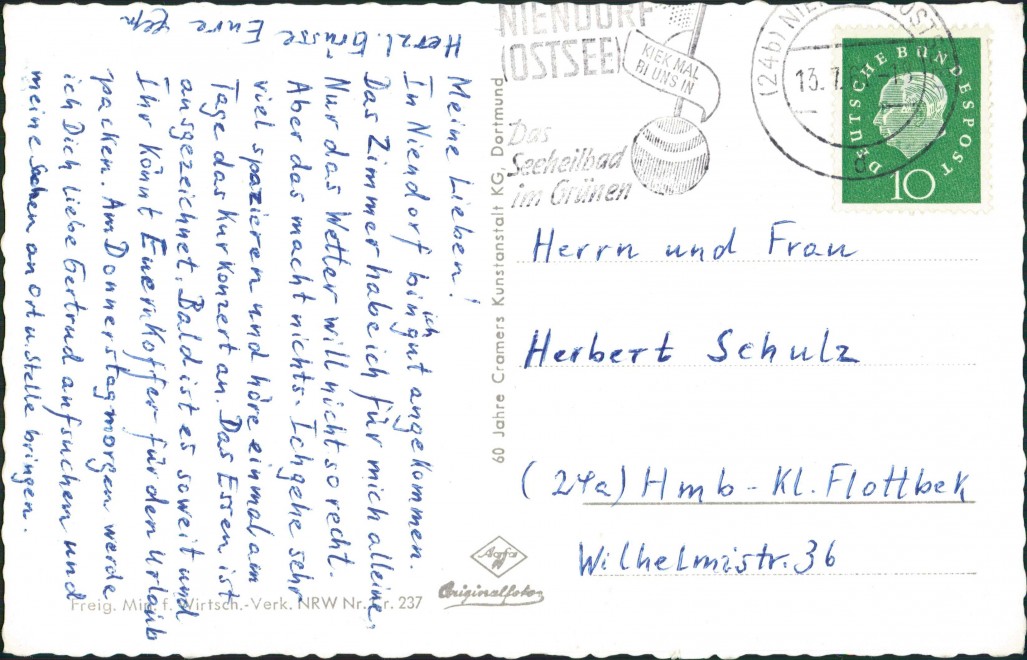 Meine Lieben!
In Niendorf bin ich gut angekommen.
Das Zimmer habe ich für mich alleine,
Nur das Wetter will nicht so recht.
Aber das macht nichts. Ich gehe sehr
viel spazieren und höre einmal am
Tage das Kurkonzert an. Das Essen ist
ausgezeichnet. Bald ist es soweit und
Ihr könnt Euern Koffer für den Urlaub
packen. Am Donnerstagmorgen werde
ich Dich liebe Gertrud aufsuchen und
meine Sachen an Ort u. Stelle bringen.
Herzl. Grüsse Eure
NIENDORF
(OSTSEE)
KIEK MAL
BI UNS IN
Das
Seeheilbad
im Grünen
(24b) NIE
OST
13.7.
DEUTSCHE BUNDESPOST
10
Herrn und Frau
Herbert Schulz
(24a) Hmb - Kl. Flottbek
Wilhelmistr. 36
60 Jahre Cramers Kunstanstalt KG, Dortmund
Agfa
Originalfoto
Freig. Min. f. Wirtsch.-Verk. NRW Nr. 237